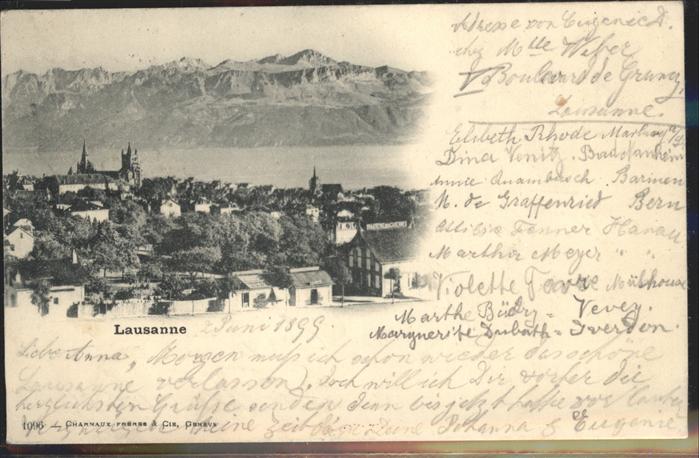 Adresse von Eugenie D.
chez Mlle Weber
Boulevard de Grancy,
Lausanne.
Elsbeth Rhode Marburg
Dina Venitz
Annie Quambusch. Barmen
M. de Graffenried Bern
Fenner Hanau
Martha Meyer " "
Violette Favre Mülhouse
Marthe Büdry = Vevey.
Marguerite Dubath = Yverdon.
Lausanne
2 Juni 1899
Liebe Anna, Morgen muß ich schon wieder das schöne
Lausanne verlassen, doch will ich Dir vorher die
herzlichsten Grüße senden denn bis jetzt hatte vor
keine Zeit Deine Johanna & Eugenie
1096 – CHARNAUX FRÈRES & CIE, GENÈVE